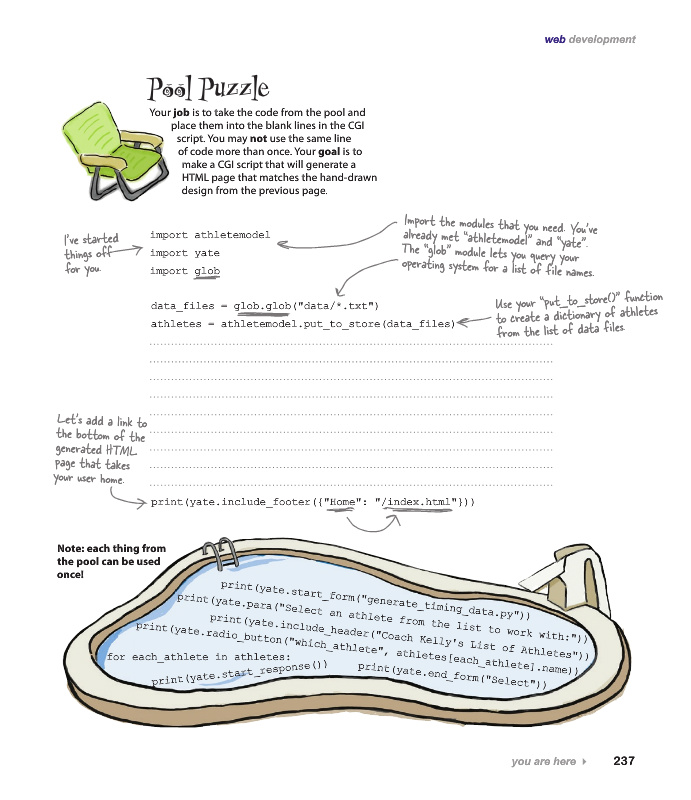 web development
Pool Puzzle
Your job is to take the code from the pool and
place them into the blank lines in the CGI
script. You may not use the same line
of code more than once. Your goal is to
make a CGI script that will generate a
HTML page that matches the hand-drawn
design from the previous page.
I've started
things off
for you.
import athletemodel
import yate
import glob
Import the modules that you need. You've
already met "athletemodel" and "yate".
The "glob" module lets you query your
operating system for a list of file names.
data_files = glob.glob("data/*.txt")
athletes = athletemodel.put_to_store(data_files)
Use your "put_to_store()" function
to create a dictionary of athletes
from the list of data files.
Let's add a link to
the bottom of the
generated HTML
page that takes
your user home.
print(yate.include_footer({"Home": "/index.html"}))
Note: each thing from
the pool can be used
once!
print(yate.start_form("generate_timing_data.py"))
print(yate.para("Select an athlete from the list to work with:"))
print(yate.include_header("Coach Kelly's List of Athletes"))
print(yate.radio_button("which_athlete", athletes[each_athlete].name))
for each_athlete in athletes:
print(yate.start_response())
print(yate.end_form("Select"))
you are here
237